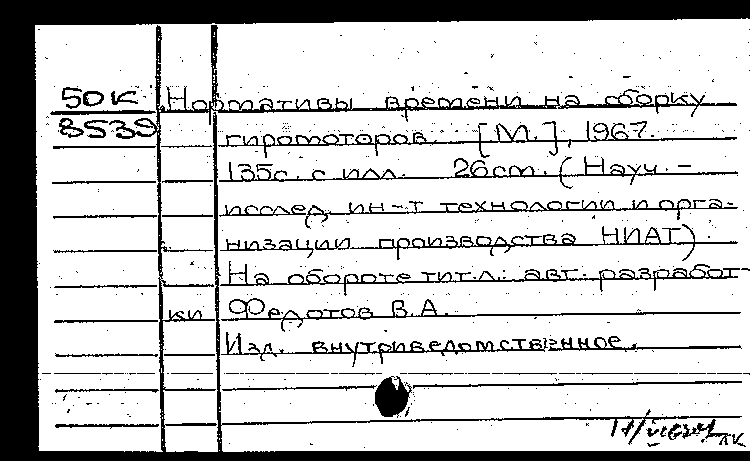 50К Нормативы времени на сборку
8539 гиромоторов. [М.], 1967.
135с. с илл. 26см. (Науч.-
исслед. ин-т технологии и орга-
низации производства НИАТ).
На обороте тит.л.: авт. разработ-
ки Федотов В.А.
Изд. внутриведомственное.
ЛК